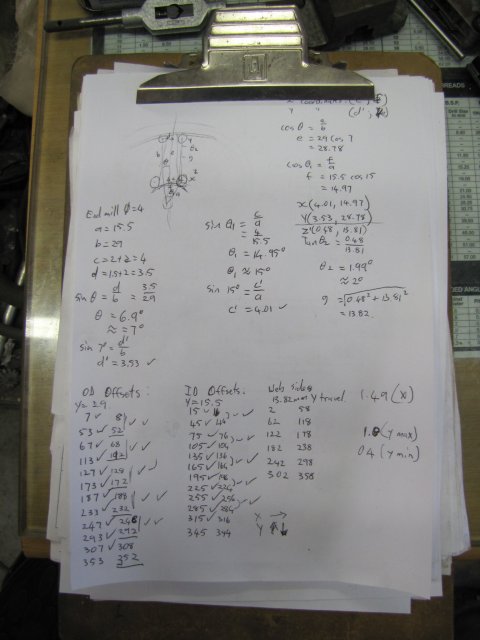 cos θ = e/b
e = 29 cos 7
= 28.78
cos θ₁ = f/a
f = 15.5 cos 15
= 14.97
x (4.01, 14.97)
y (3.53, 28.78)
z' (0.48, 13.81)
Tan θ₂ = 0.48/13.81
θ₂ = 1.99°
≈ 2°
g = √0.48² + 13.81²
= 13.82
End mill Ø = 4
a = 15.5
b = 29
c = 2+2 = 4
d = 1.5+2 = 3.5
sin θ = d/b = 3.5/29
θ = 6.9°
≈ = 7°
sin 7° = d'/b
d' = 3.53 ✓
sin θ₁ = c/a
= 4/15.5
θ₁ = 14.95°
θ₁ ≈ 15°
sin 15° = c'/a
c' = 4.01 ✓
OD Offsets:
Y = 29
7 ✓ 8
53 ✓ 52
67 ✓ 68
113 ✓ 112
127 ✓ 128
173 ✓ 172
187 ✓ 188
233 ✓ 232
247 ✓ 248
293 ✓ 292
307 ✓ 308
353 352
ID Offsets:
Y = 15.5
15 ✓ 16
45 ✓ 44
75 ✓ 76
105 ✓ 104
135 ✓ 136
165 ✓ 164
195 ✓ 196
225 ✓ 224
255 ✓ 256
285 ✓ 284
315 ✓ 316
345 344
Web sides
13.82mm Y travel
2 58
62 118
122 178
182 238
242 298
302 358
X →
Y ↑↓
1.49 (X)
(Y max)
0.4 (Y min)